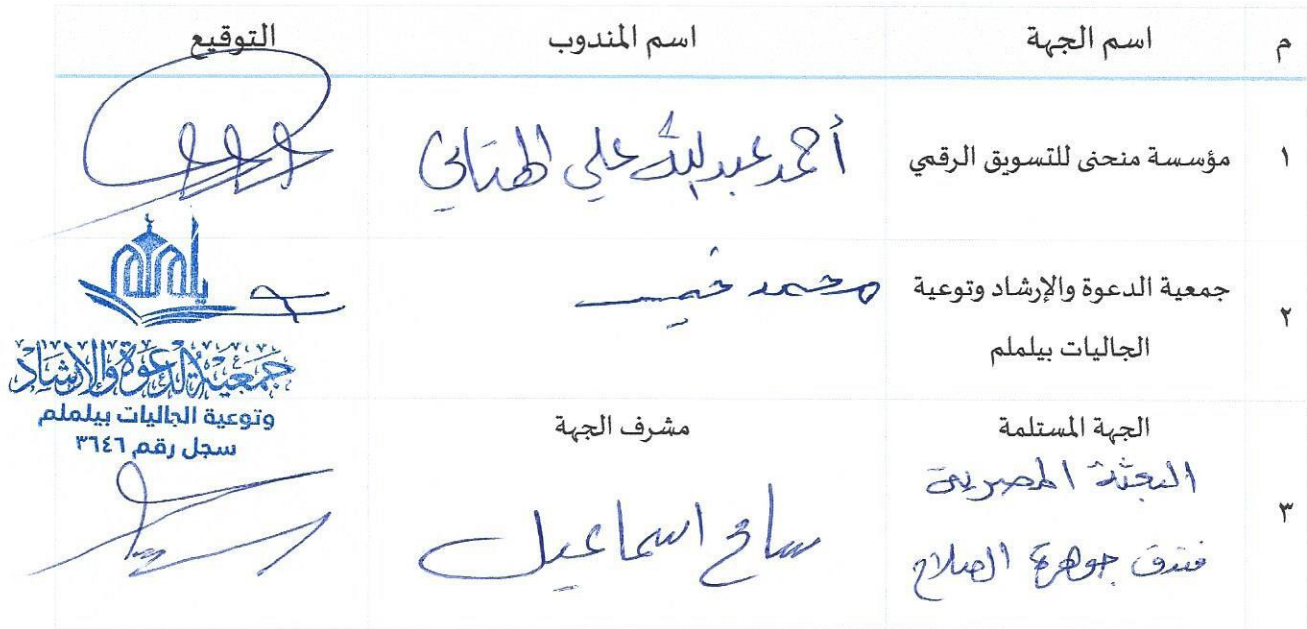 م اسم الجهة اسم المندوب التوقيع
١ مؤسسة منحنى للتسويق الرقمي أحمد عبدالله علي الهتاني
٢ جمعية الدعوة والإرشاد وتوعية الجاليات بيلملم محمد خميس
يلملم
جمعية الدعوة والإرشاد
وتوعية الجاليات بيلملم
سجل رقم ٣٦٤٦
٣ الجهة المستلمة مشرف الجهة
البعثة المصرية
فندق جوهرة الصلاح سامح اسماعيل